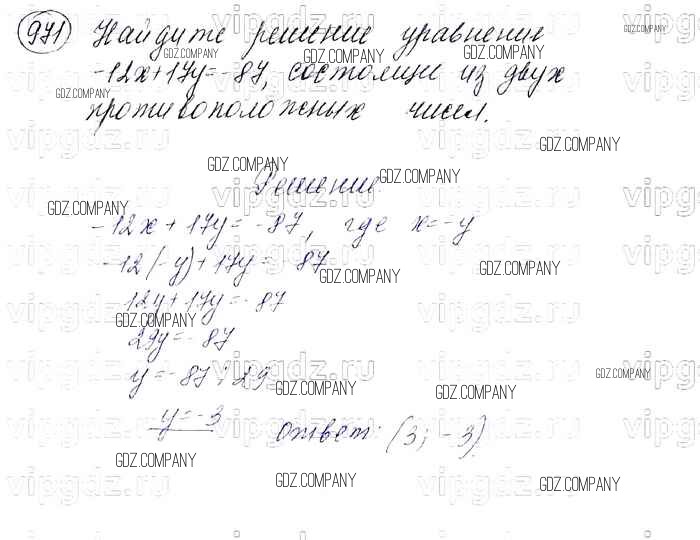 971 Найдите решение уравнение
-12x+17y=-87, состоящие из двух
противоположных чисел.
Решение.
-12x + 17y = -87, где x=-y
-12(-y)+17y = -87
12y+17y = -87
29y = -87
y = -87 : 29
y = -3
Ответ: (3; -3).
GDZ.COMPANY
vipgdz.ru